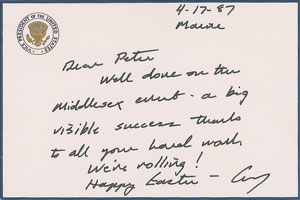 VICE PRESIDENT OF THE UNITED STATES
4-17-87
Maine
Dear Peter
Well done on the
Middlesex event - a big
visible success thanks
to all your hard work
We're rolling!
Happy Easter -